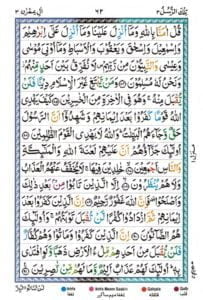 تِلْكَ الرُّسُلُ ٣ ٦٢ اٰل عِمْرٰن ٣
قُلْ اٰمَنَّا بِاللّٰهِ وَمَاۤ اُنْزِلَ عَلَيْنَا وَمَاۤ اُنْزِلَ عَلٰۤى اِبْرٰهِيْمَ
وَاِسْمٰعِيْلَ وَاِسْحٰقَ وَيَعْقُوْبَ وَالْاَسْبَاطِ وَمَاۤ اُوْتِيَ مُوْسٰى
وَعِيْسٰى وَالنَّبِيُّوْنَ مِنْ رَّبِّهِمْ لَا نُفَرِّقُ بَيْنَ اَحَدٍ مِّنْهُمْ
وَنَحْنُ لَهٗ مُسْلِمُوْنَ وَمَنْ يَّبْتَغِ غَيْرَ الْاِسْلَامِ دِيْنًا فَلَنْ
يُّقْبَلَ مِنْهُ وَهُوَ فِي الْاٰخِرَةِ مِنَ الْخٰسِرِيْنَ كَيْفَ يَهْدِي
اللّٰهُ قَوْمًا كَفَرُوْا بَعْدَ اِيْمَانِهِمْ وَشَهِدُوْۤا اَنَّ الرَّسُوْلَ
حَقٌّ وَّجَآءَهُمُ الْبَيِّنٰتُ وَاللّٰهُ لَا يَهْدِي الْقَوْمَ الظّٰلِمِيْنَ
اُولٰٓئِكَ جَزَآؤُهُمْ اَنَّ عَلَيْهِمْ لَعْنَةَ اللّٰهِ وَالْمَلٰٓئِكَةِ
وَالنَّاسِ اَجْمَعِيْنَ خٰلِدِيْنَ فِيْهَا لَا يُخَفَّفُ عَنْهُمُ الْعَذَابُ
وَلَا هُمْ يُنْظَرُوْنَ اِلَّا الَّذِيْنَ تَابُوْا مِنْۢ بَعْدِ ذٰلِكَ
وَاَصْلَحُوْا فَاِنَّ اللّٰهَ غَفُوْرٌ رَّحِيْمٌ اِنَّ الَّذِيْنَ كَفَرُوْا بَعْدَ
اِيْمَانِهِمْ ثُمَّ ازْدَادُوْا كُفْرًا لَّنْ تُقْبَلَ تَوْبَتُهُمْ وَاُولٰٓئِكَ
هُمُ الضَّآلُّوْنَ اِنَّ الَّذِيْنَ كَفَرُوْا وَمَاتُوْا وَهُمْ كُفَّارٌ
فَلَنْ يُّقْبَلَ مِنْ اَحَدِهِمْ مِّلْءُ الْاَرْضِ ذَهَبًا وَّلَوِ افْتَدٰى
بِهٖ اُولٰٓئِكَ لَهُمْ عَذَابٌ اَلِيْمٌ وَّمَا لَهُمْ مِّنْ نّٰصِرِيْنَ